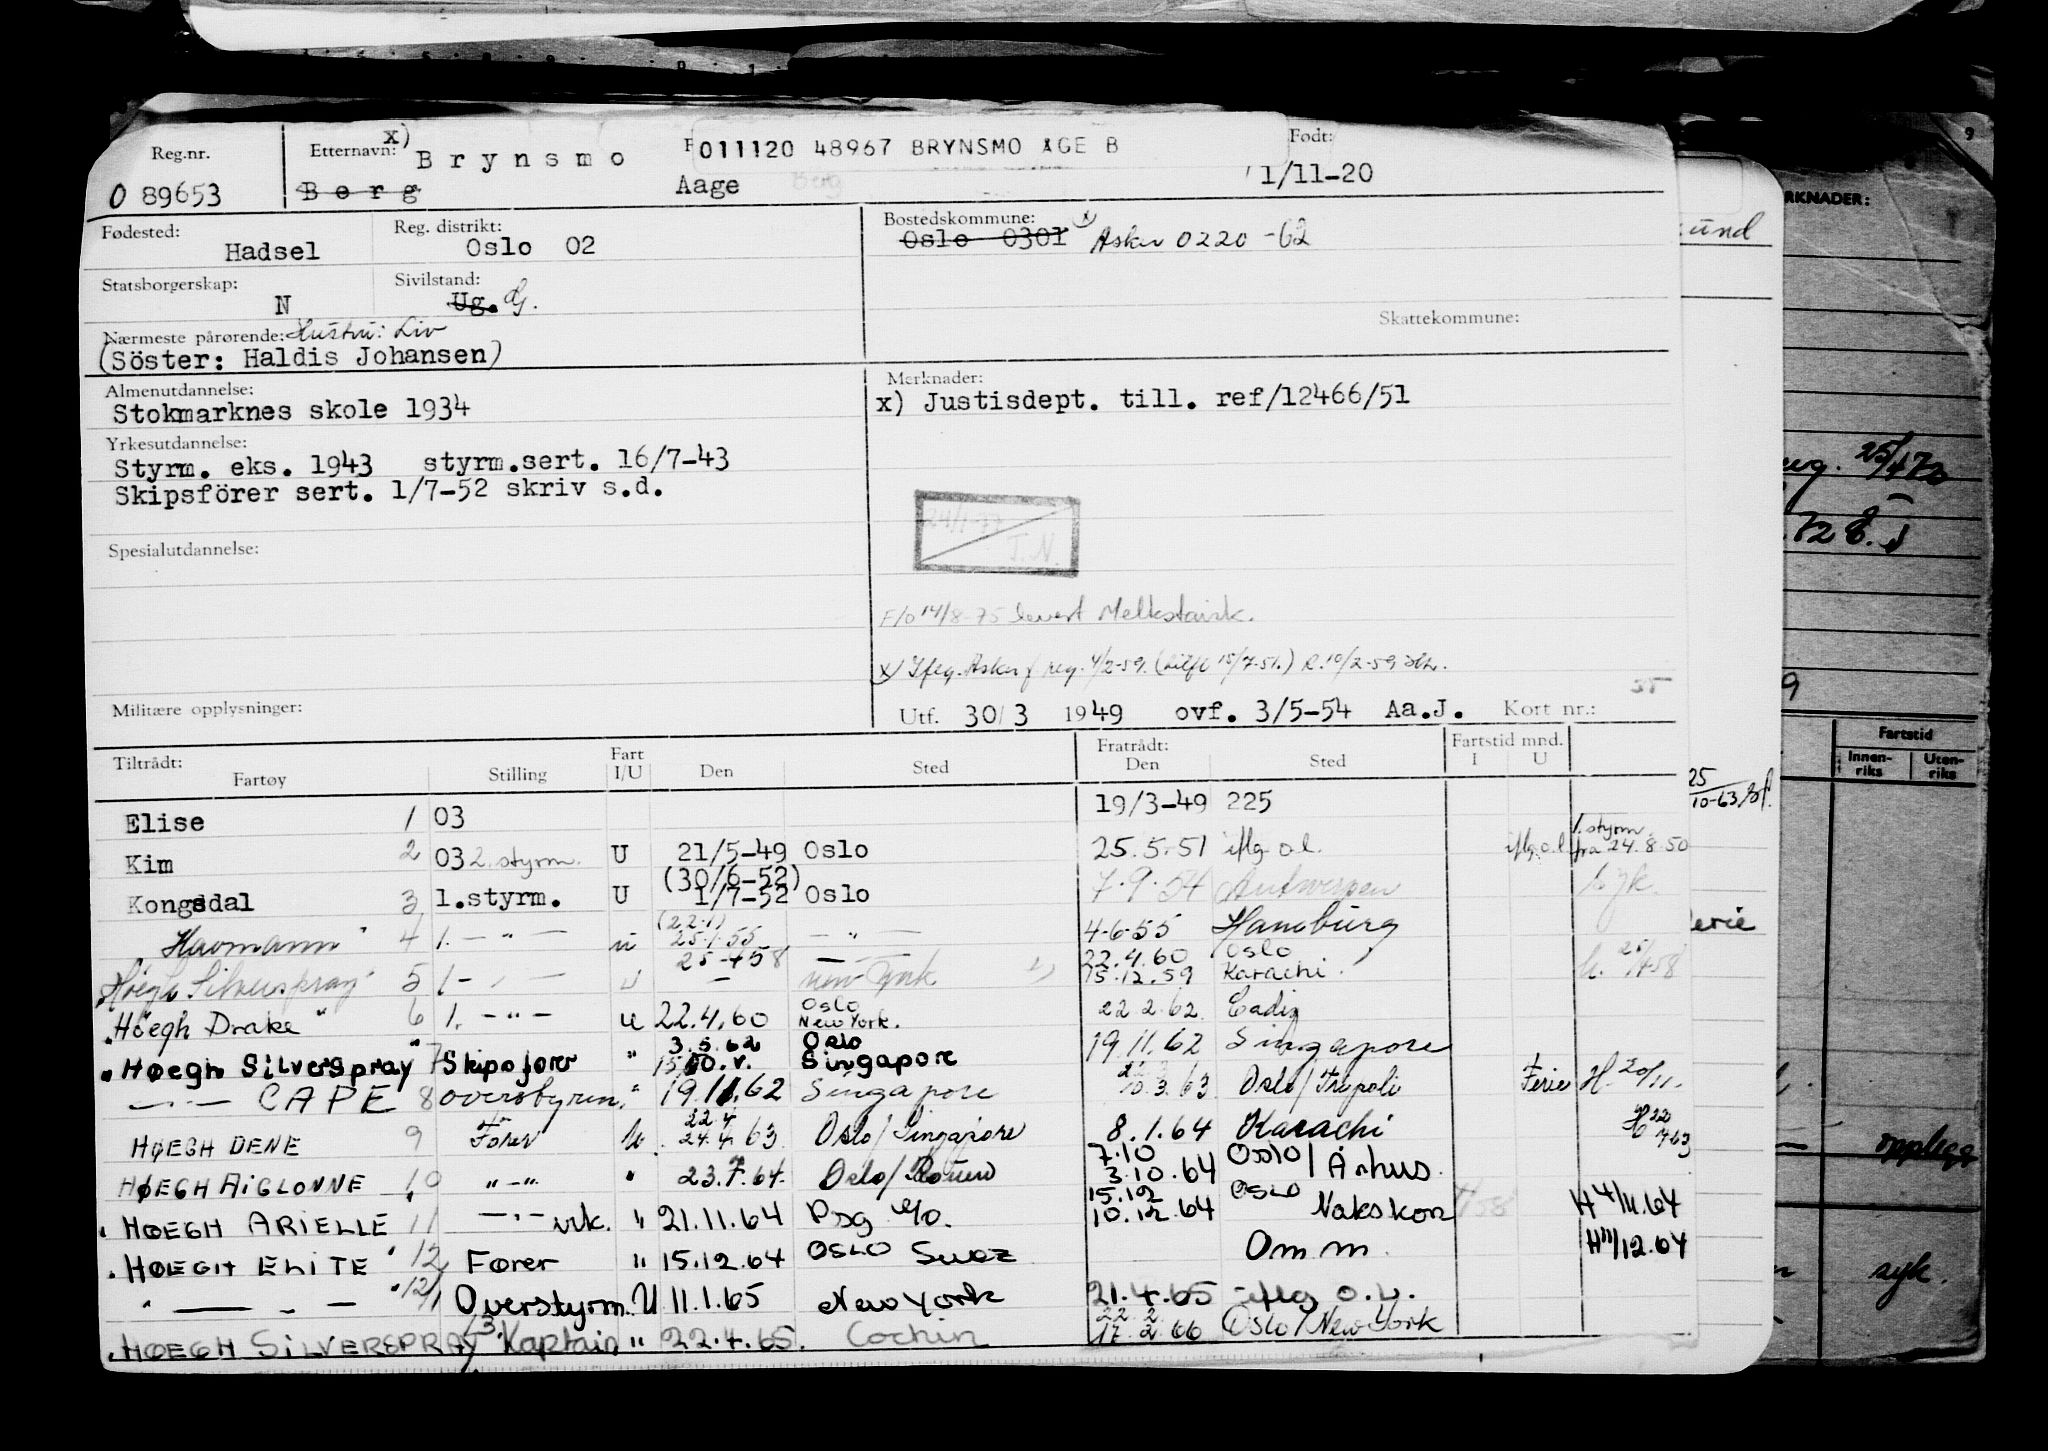 Reg.nr. Etternavn: x) Brynsmo 011120 48967 BRYNSMO ÅGE B Født:
O 89653 Berg Aage 1/11-20
Fødested: Reg. distrikt: Bostedskommune: x)
Hadsel Oslo 02 Oslo 0301 Asker 0220 -62
Statsborgerskap: Sivilstand:
N Ug. G.
Skattekommune:
Nærmeste pårørende: Hustru: Liv
(Söster: Haldis Johansen)
Almenutdannelse: Merknader:
Stokmarknes skole 1934 x) Justisdept. till. ref/12466/51
Yrkesutdannelse:
Styrm. eks. 1943 styrm.sert. 16/7-43
Skipsförer sert. 1/7-52 skriv s.d.
24/1-77
T.N.
Spesialutdannelse:
F/O 14/8-75 levert
x) Ifølg. Asker f reg. 4/2-59. 15/7-51.) R. 10/2-59
Militære opplysninger: Utf. 30/3 1949 ovf. 3/5-54 Aa.J. Kort nr.:
Tiltrådt: Fart Fratrådt: Fartstid mnd.
Fartøy Stilling I/U Den Sted Den Sted I U
Elise 1 03 19/3-49 225
Kim 2 03 2. styrm. U 21/5-49 Oslo 25.5.51 iflg o.l. iflg. o.l. 1. styrm fra 24.8.50
Kongsdal 3 1.styrm. U (30/6-52) 1/7-52 Oslo 7.9.54 Antwerpen
Havmann 4 1. — " — u (22.1) 25.1.55 — " — 4.6.55 Hamburg
Høegh Silverspray 5 1 - " - u 25-4-58 New York 22.4.60 Oslo 15.12.59 Karachi 25/4-58
"Höegh Drake" 6 1. - " - u 22.4.60 Oslo New York. 22.2.62 Cadiz
"Høegh Silverspray" 7 Skipsfører " 3.5.62 Oslo Singapore 19.11.62 Singapore
— " — CAPE 8 overstyrm. " 19.11.62 Singapore 10.3.63 Oslo/Tripoli Ferie H. 20/11.
HØEGH DENE 9 Fører u. 22.4 24.4.63 Oslo/Singapore 8.1.64 Karachi
HØEGH AIGLONNE 10 " - " " 23.7.64. Oslo/Rouen 7.10 3.10.64 Oslo/Århus.
"HØEGH ARIELLE 11 — " — " 21.11.64 15.12 10.12.64 OSLO Nakskov H 4/11.64
"HØEGH ELITE" 12 Fører " 15.12.64 OSLO Suez Omm. H 11/12.64
" — " — 12/1 Overstyrm. U 11.1.65 New York 21.4.65 iflg o.l.
"HØEGH SILVERSPRAY 13. Kaptein " 22.4.65. Cochin 22.2. 17.2.66 Oslo/New York
RKNADER:
und
25/4 72
72
Fartstid
Innen-riks Uten-riks
25/10-63
erie
syk.